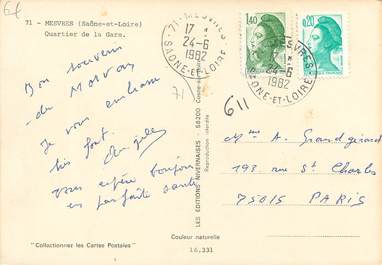 6f
71 - MESVRES (Saône-et-Loire)
Quartier de la Gare.
71 - MESVRES
17 H
24-6
1982
SAONE-ET-LOIRE
1,40
0,20
MESVRES
24-6
1982
SAONE-ET-LOIRE
Bon souvenir
du Morvan
Je vous embrasse
très fort.
espère toujours
en parfaite santé
71
611
LES EDITIONS NIVERNAISES - 58200 Cosne-sur-Loire
Reproduction interdite
Mme A. Grandgirard
193 rue St Charles
75015 PARIS
Couleur naturelle
"Collectionnez les Cartes Postales"
16.331